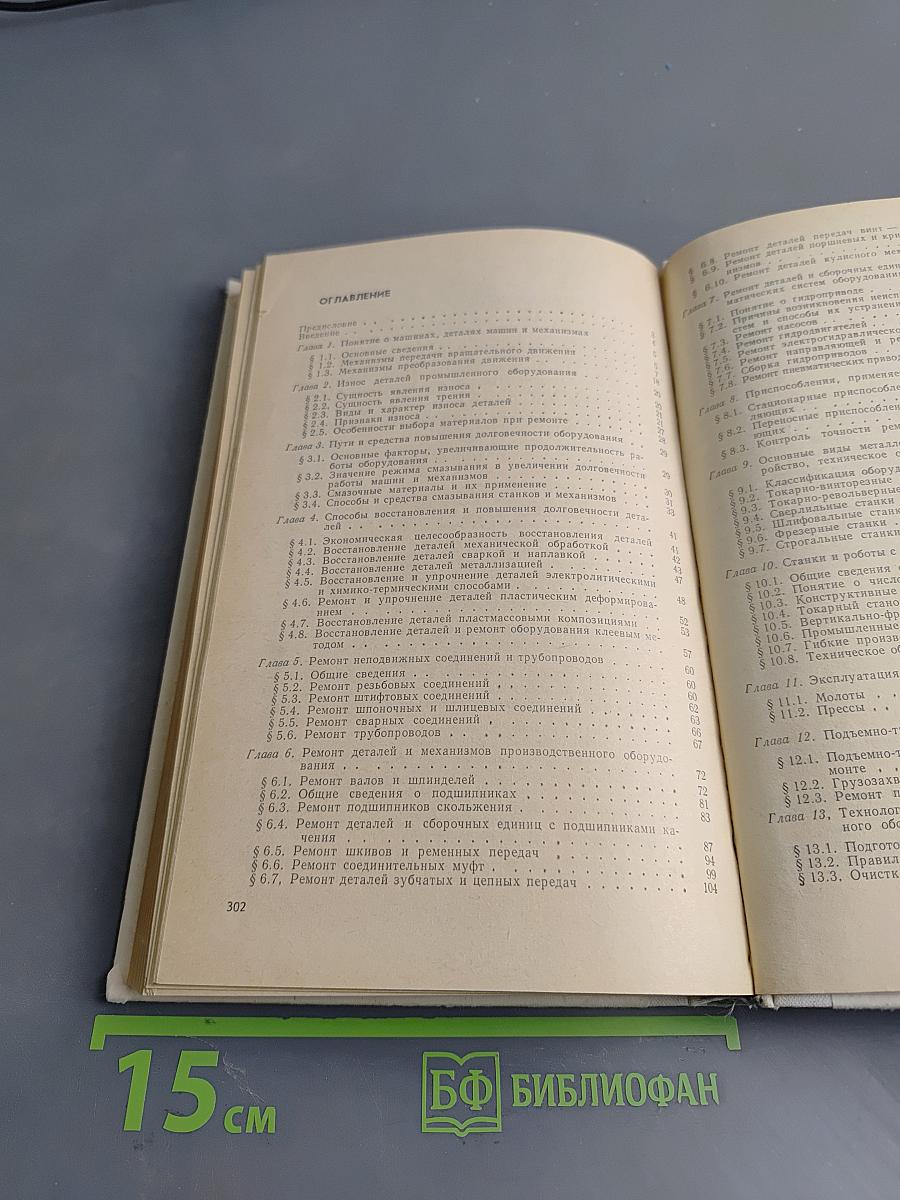 ОГЛАВЛЕНИЕ
Предисловие
Введение
Глава 1. Понятие о машинах, деталях машин и механизмах
§ 1.1. Основные сведения
§ 1.2. Механизмы передачи вращательного движения
§ 1.3. Механизмы преобразования движения
Глава 2. Износ деталей промышленного оборудования
§ 2.1. Сущность явления износа
§ 2.2. Сущность явления трения
§ 2.3. Виды и характер износа деталей
§ 2.4. Признаки износа
§ 2.5. Особенности выбора материалов при ремонте
Глава 3. Пути и средства повышения долговечности оборудования
§ 3.1. Основные факторы, увеличивающие продолжительность ра-
боты оборудования
§ 3.2. Значение режима смазывания в увеличении долговечности
работы машин и механизмов
§ 3.3. Смазочные материалы и их применение
§ 3.4. Способы и средства смазывания станков и механизмов
Глава 4. Способы восстановления и повышения долговечности дета-
лей
§ 4.1. Экономическая целесообразность восстановления деталей
§ 4.2. Восстановление деталей механической обработкой
§ 4.3. Восстановление деталей сваркой и наплавкой
§ 4.4. Восстановление деталей металлизацией
§ 4.5. Восстановление и упрочнение деталей электролитическими
и химико-термическими способами
§ 4.6. Ремонт и упрочнение деталей пластическим деформирова-
нием
§ 4.7. Восстановление деталей пластмассовыми композициями
§ 4.8. Восстановление деталей и ремонт оборудования клеевым ме-
тодом 57
Глава 5. Ремонт неподвижных соединений и трубопроводов 60
§ 5.1. Общие сведения 60
§ 5.2. Ремонт резьбовых соединений 60
§ 5.3. Ремонт штифтовых соединений 62
§ 5.4. Ремонт шпоночных и шлицевых соединений 63
§ 5.5. Ремонт сварных соединений 66
§ 5.6. Ремонт трубопроводов 67
Глава 6. Ремонт деталей и механизмов производственного оборудо-
вания 72
§ 6.1. Ремонт валов и шпинделей 72
§ 6.2. Общие сведения о подшипниках 81
§ 6.3. Ремонт подшипников скольжения 83
§ 6.4. Ремонт деталей и сборочных единиц с подшипниками ка-
чения 87
§ 6.5. Ремонт шкивов и ременных передач 94
§ 6.6. Ремонт соединительных муфт 99
§ 6.7, Ремонт деталей зубчатых и цепных передач 104
302
§ 6.8. Ремонт деталей передач винт —
§ 6.9. Ремонт деталей поршневых и кри
низмов
§ 6.10. Ремонт деталей кулисного мех
Глава 7. Ремонт деталей и сборочных един
матических систем оборудования
§ 7.1. Понятие о гидроприводе
§ 7.2. Причины возникновения неисп
стем и способы их устранени
§ 7.3. Ремонт насосов
§ 7.4. Ремонт гидродвигателей
§ 7.5. Ремонт электрогидравлическ
§ 7.6. Ремонт направляющей и ре
§ 7.7. Сборка гидроприводов
§ 7.8. Ремонт пневматических привод
Глава 8. Приспособления, применяе
§ 8.1. Стационарные приспособле
ляющих
§ 8.2. Переносные приспособлен
ющих
§ 8.3. Контроль точности рем
Глава 9. Основные виды металло
ройство, техническое о
§ 9.1. Классификация оборуд
§ 9.2. Токарно-винторезные
§ 9.3. Токарно-револьверные
§ 9.4. Сверлильные станки
§ 9.5. Шлифовальные станк
§ 9.6. Фрезерные станки
§ 9.7. Строгальные станки
Глава 10. Станки и роботы с
§ 10.1. Общие сведения о
§ 10.2. Понятие о число
§ 10.3. Конструктивные
§ 10.4. Токарный стано
§ 10.5. Вертикально-фр
§ 10.6. Промышленные
§ 10.7. Гибкие произв
§ 10.8. Техническое об
Глава 11. Эксплуатация
§ 11.1. Молоты
§ 11.2. Прессы
Глава 12. Подъемно-т
§ 12.1. Подъемно-т
монте
§ 12.2. Грузозахв
§ 12.3. Ремонт п
Глава 13, Технолог
ного обо
§ 13.1. Подгото
§ 13.2. Правил
§ 13.3. Очистк
15 см
БФ БИБЛИОФАН